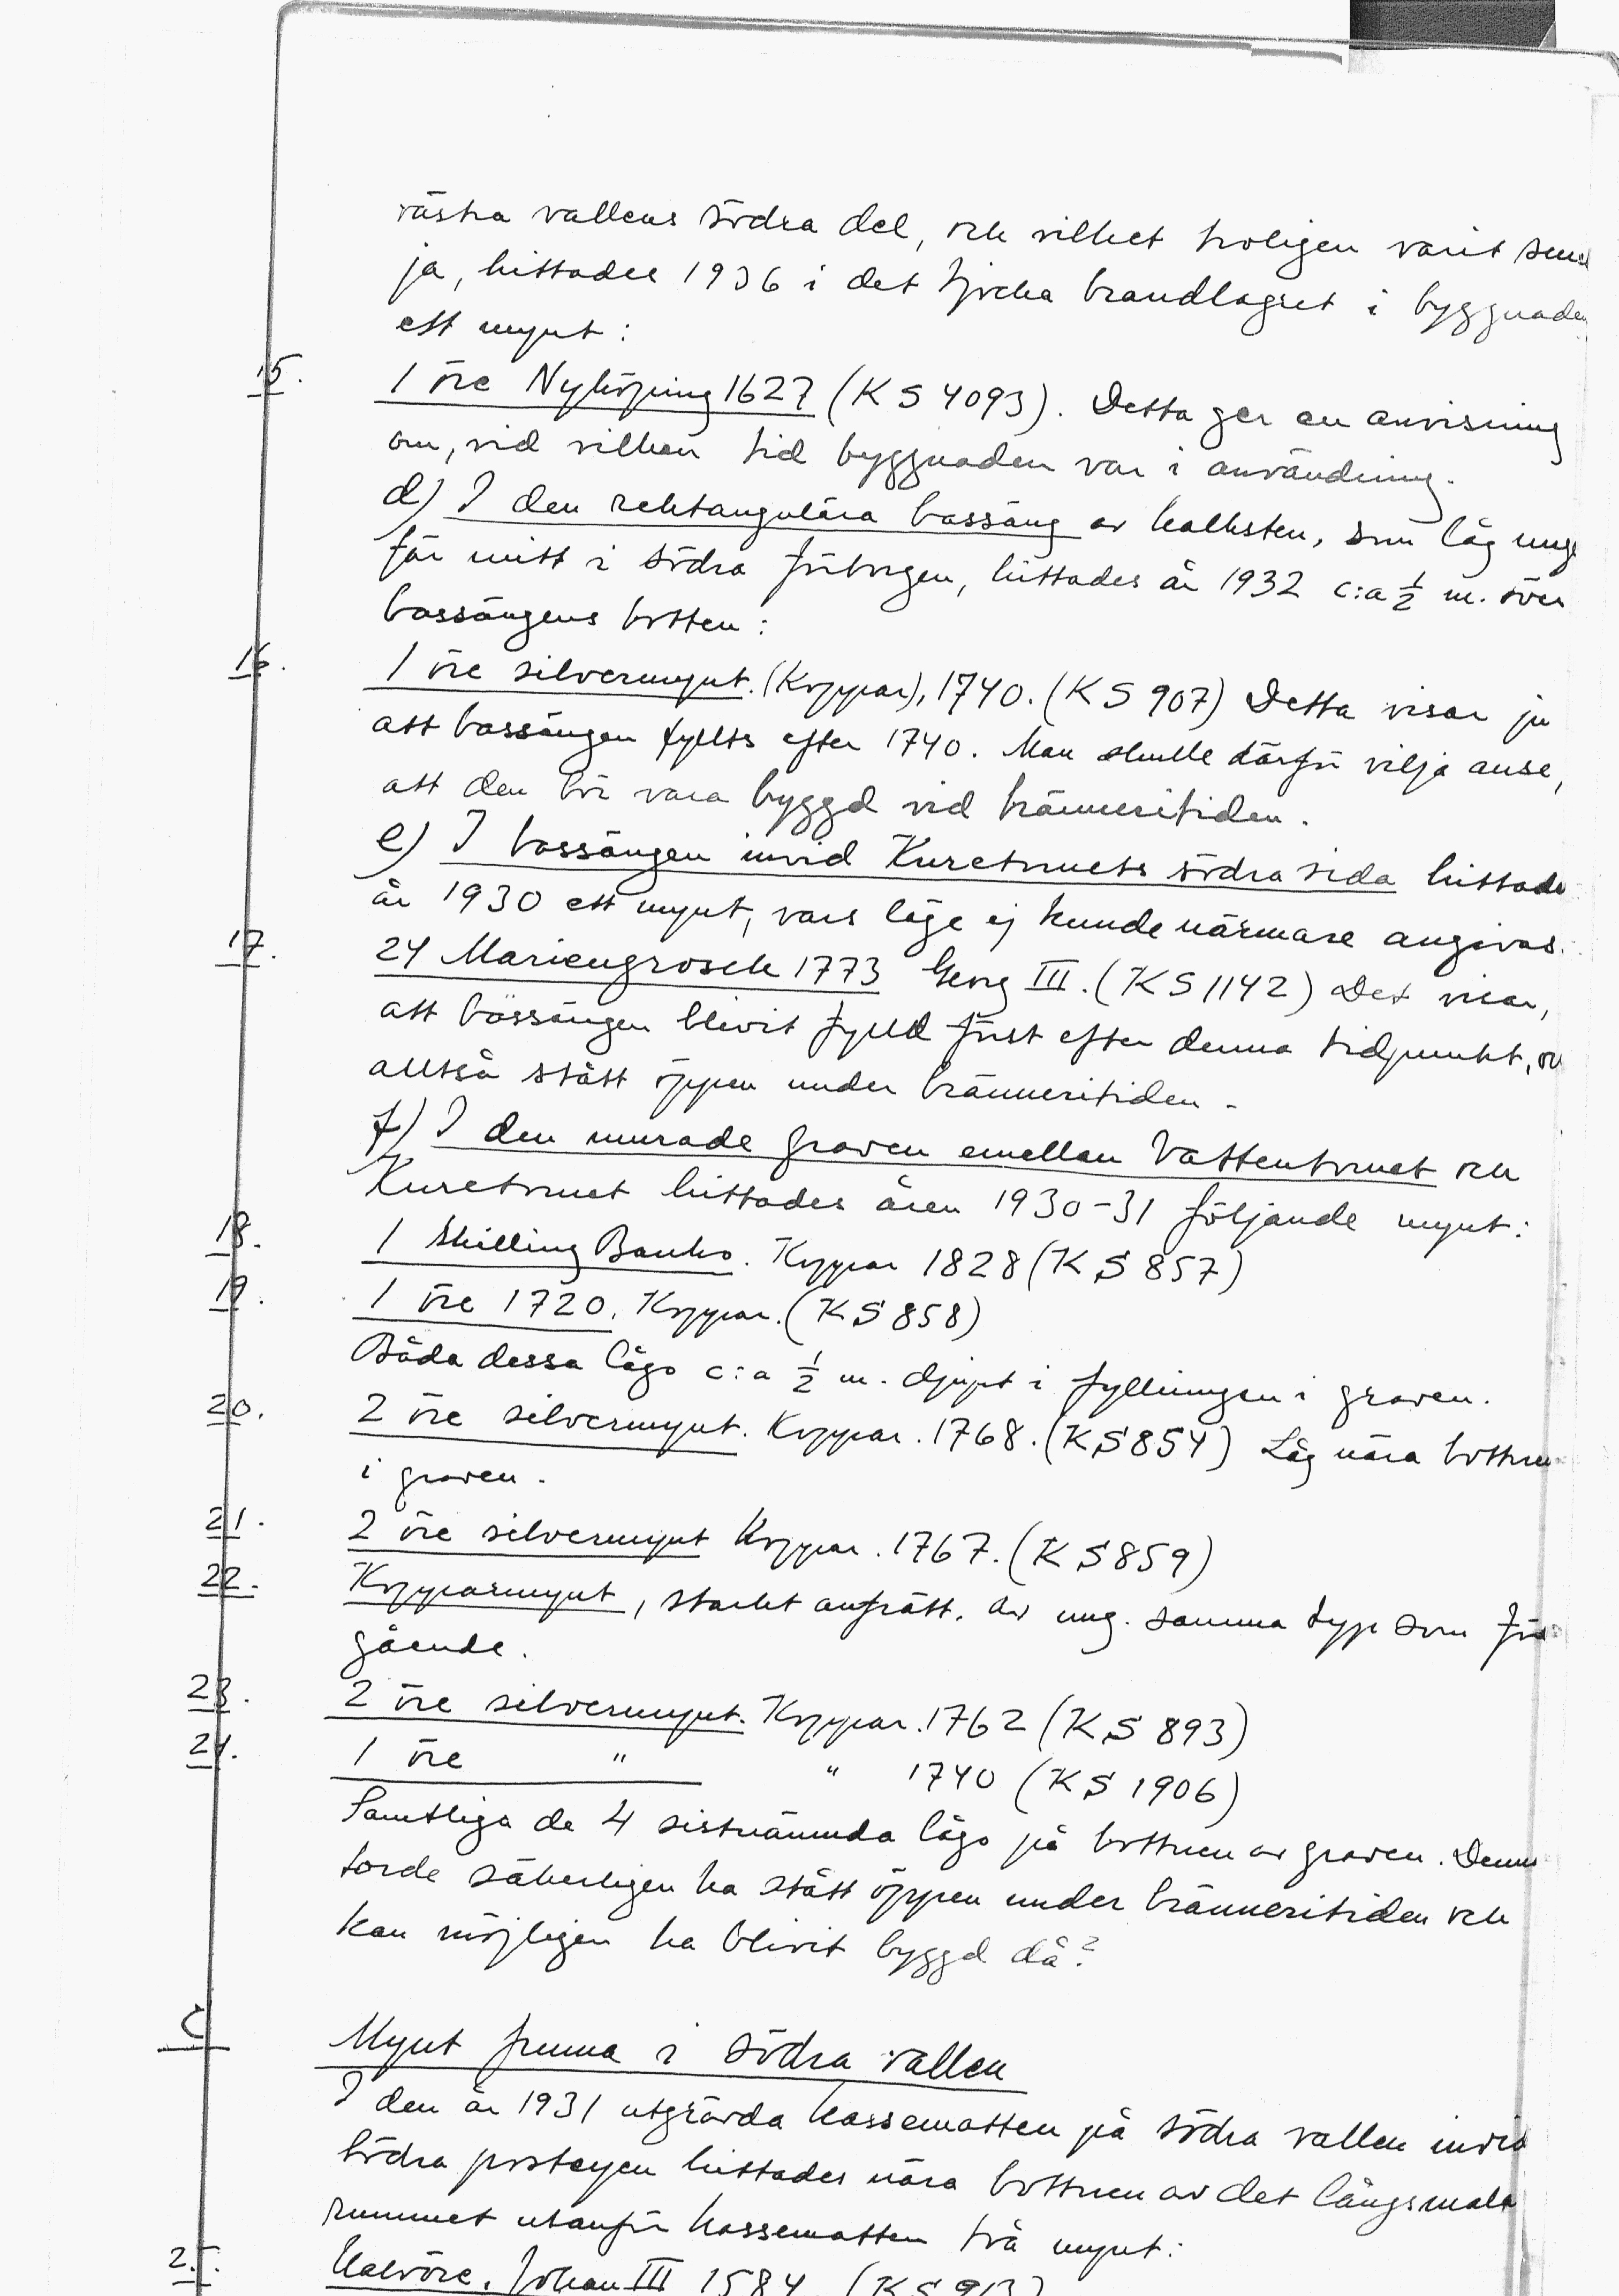 västra vallens södra del, och vilket troligen varit
ja, hittades 1936 i det tjocka brandlagret i byggnaden
ett mynt:
15. 1 öre Nyköping 1627 (KS 4093). Detta ger en anvisning
om, vid vilken tid byggnaden var i användning.
d) I den rektangulära bassäng av kalksten, som låg unge
fär mitt i södra förborgen, hittades år 1932 c:a ½ m. över
bassängens botten:
16. 1 öre silvermynt. (Koppar), 1740. (KS 907) Detta visar ju
att bassängen fyllts efter 1740. Man skulle därför vilja anse,
att den bör vara byggd vid bränneritiden.
e) I bassängen invid Kuretornets södra sida hittade
år 1930 ett mynt, vars läge ej kunde närmare angivas.
17. 24 Mariengrosch 1773 Georg III. (KS 1142) Det visar,
att bassängen blivit fylld först efter denna tidpunkt, oc
alltså stått öppen under bränneritiden.
f) I den murade graven emellan Vattentornet och
Kuretornet hittades åren 1930-31 följande mynt:
18. 1 Skilling Banko. Koppar 1828 (KS 857)
19. 1 öre 1720. Koppar. (KS 858)
Båda dessa lågo c:a ½ m. djupt i fyllningen i graven.
20. 2 öre silvermynt. Koppar. 1768. (KS 854) Låg nära bottnen
i graven.
21. 2 öre silvermynt Koppar. 1767. (KS 859)
22. Kopparmynt, starkt anfrätt. av ung. samma typ som före
gående.
23. 2 öre silvermynt. Koppar. 1762 (KS 893)
24. 1 öre " " 1740 (KS 1906)
Samtliga de 4 sistnämnda lågo på bottnen av graven. Denna
torde säkerligen ha stått öppen under bränneritiden och
kan möjligen ha blivit byggd då?
C Mynt funna i södra vallen
I den år 1931 utgrävda kassematten på södra vallen invid
södra porten hittades nära bottnen av det långsmala
rummet utanför kassematten två mynt:
25. Halvöre. Johan III 1584. (KS 913)